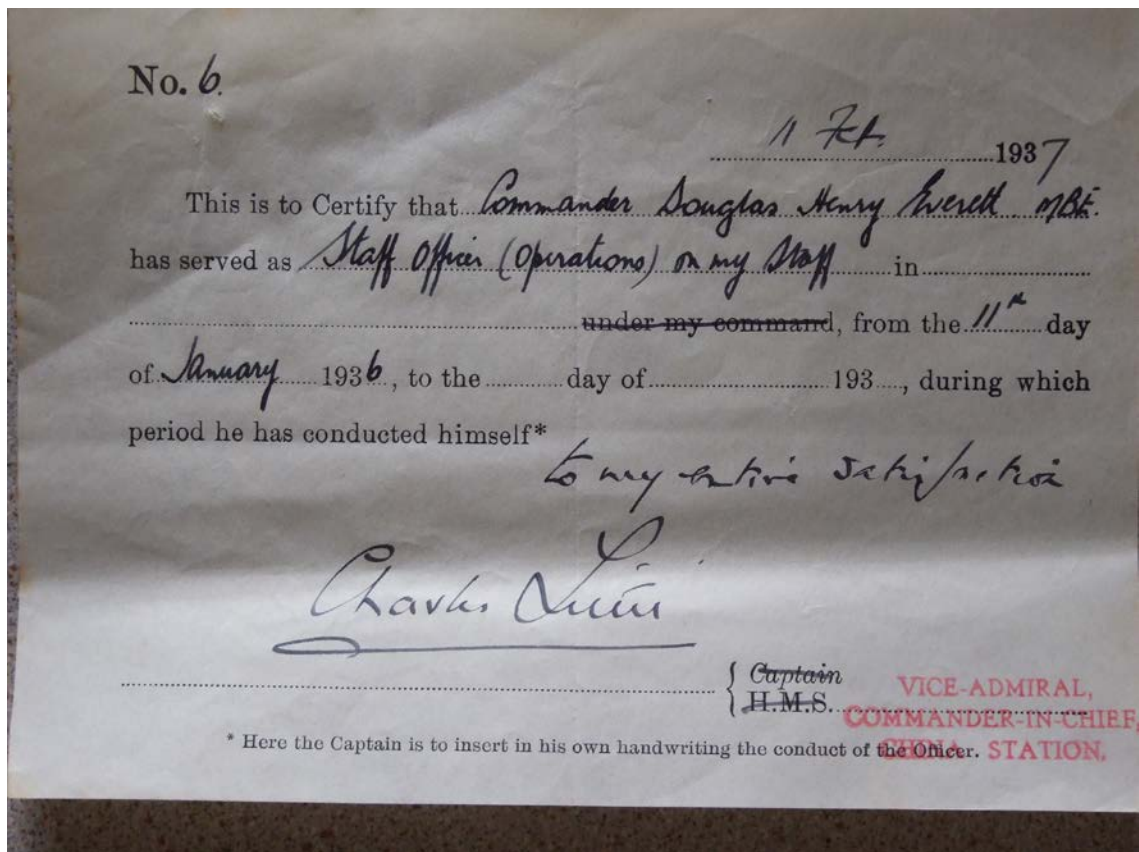 No. 6.
11 Feb. 1937
This is to Certify that Commander Douglas Henry Everett MBE.
has served as Staff Officer (Operations) on my Staff in
under my command, from the 11th day
of January 1936, to the day of 193 , during which
period he has conducted himself*
to my entire satisfaction
Charles Little
{ Captain
H.M.S.
VICE-ADMIRAL,
COMMANDER-IN-CHIEF,
CHINA STATION.
* Here the Captain is to insert in his own handwriting the conduct of the Officer.